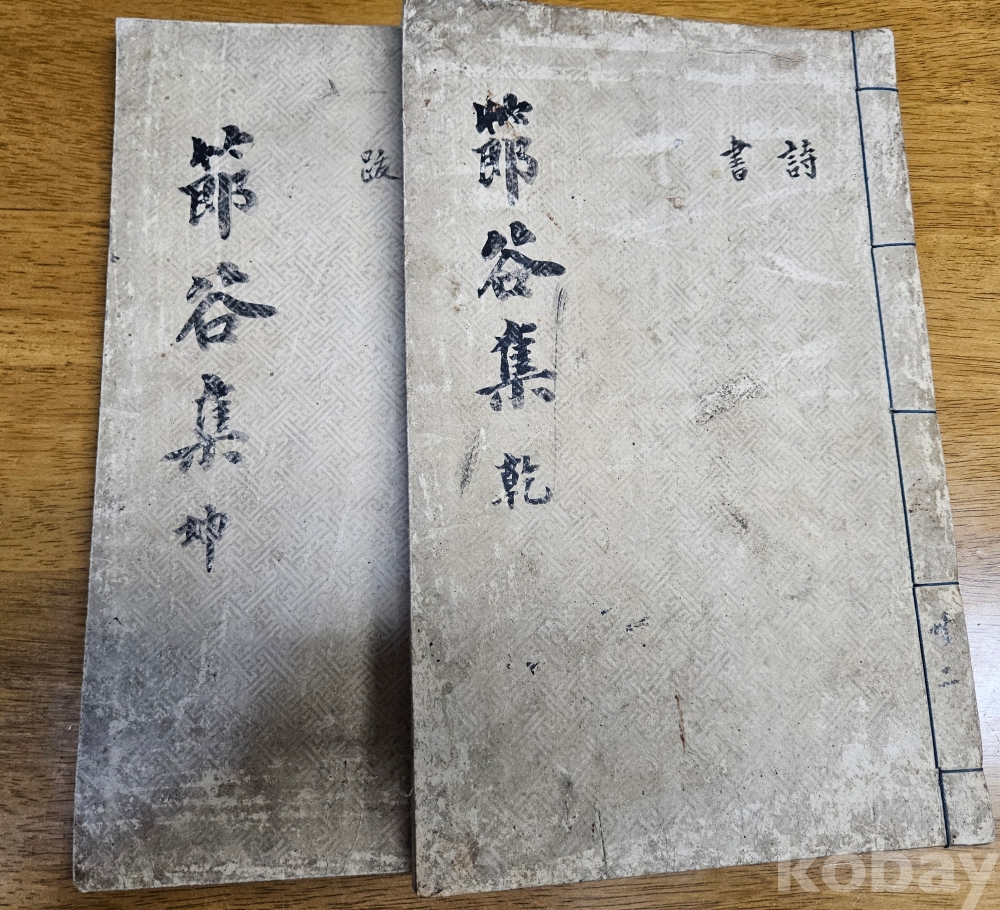 共二
詩
書
節谷集 乾
跋
節谷集 坤
kobay